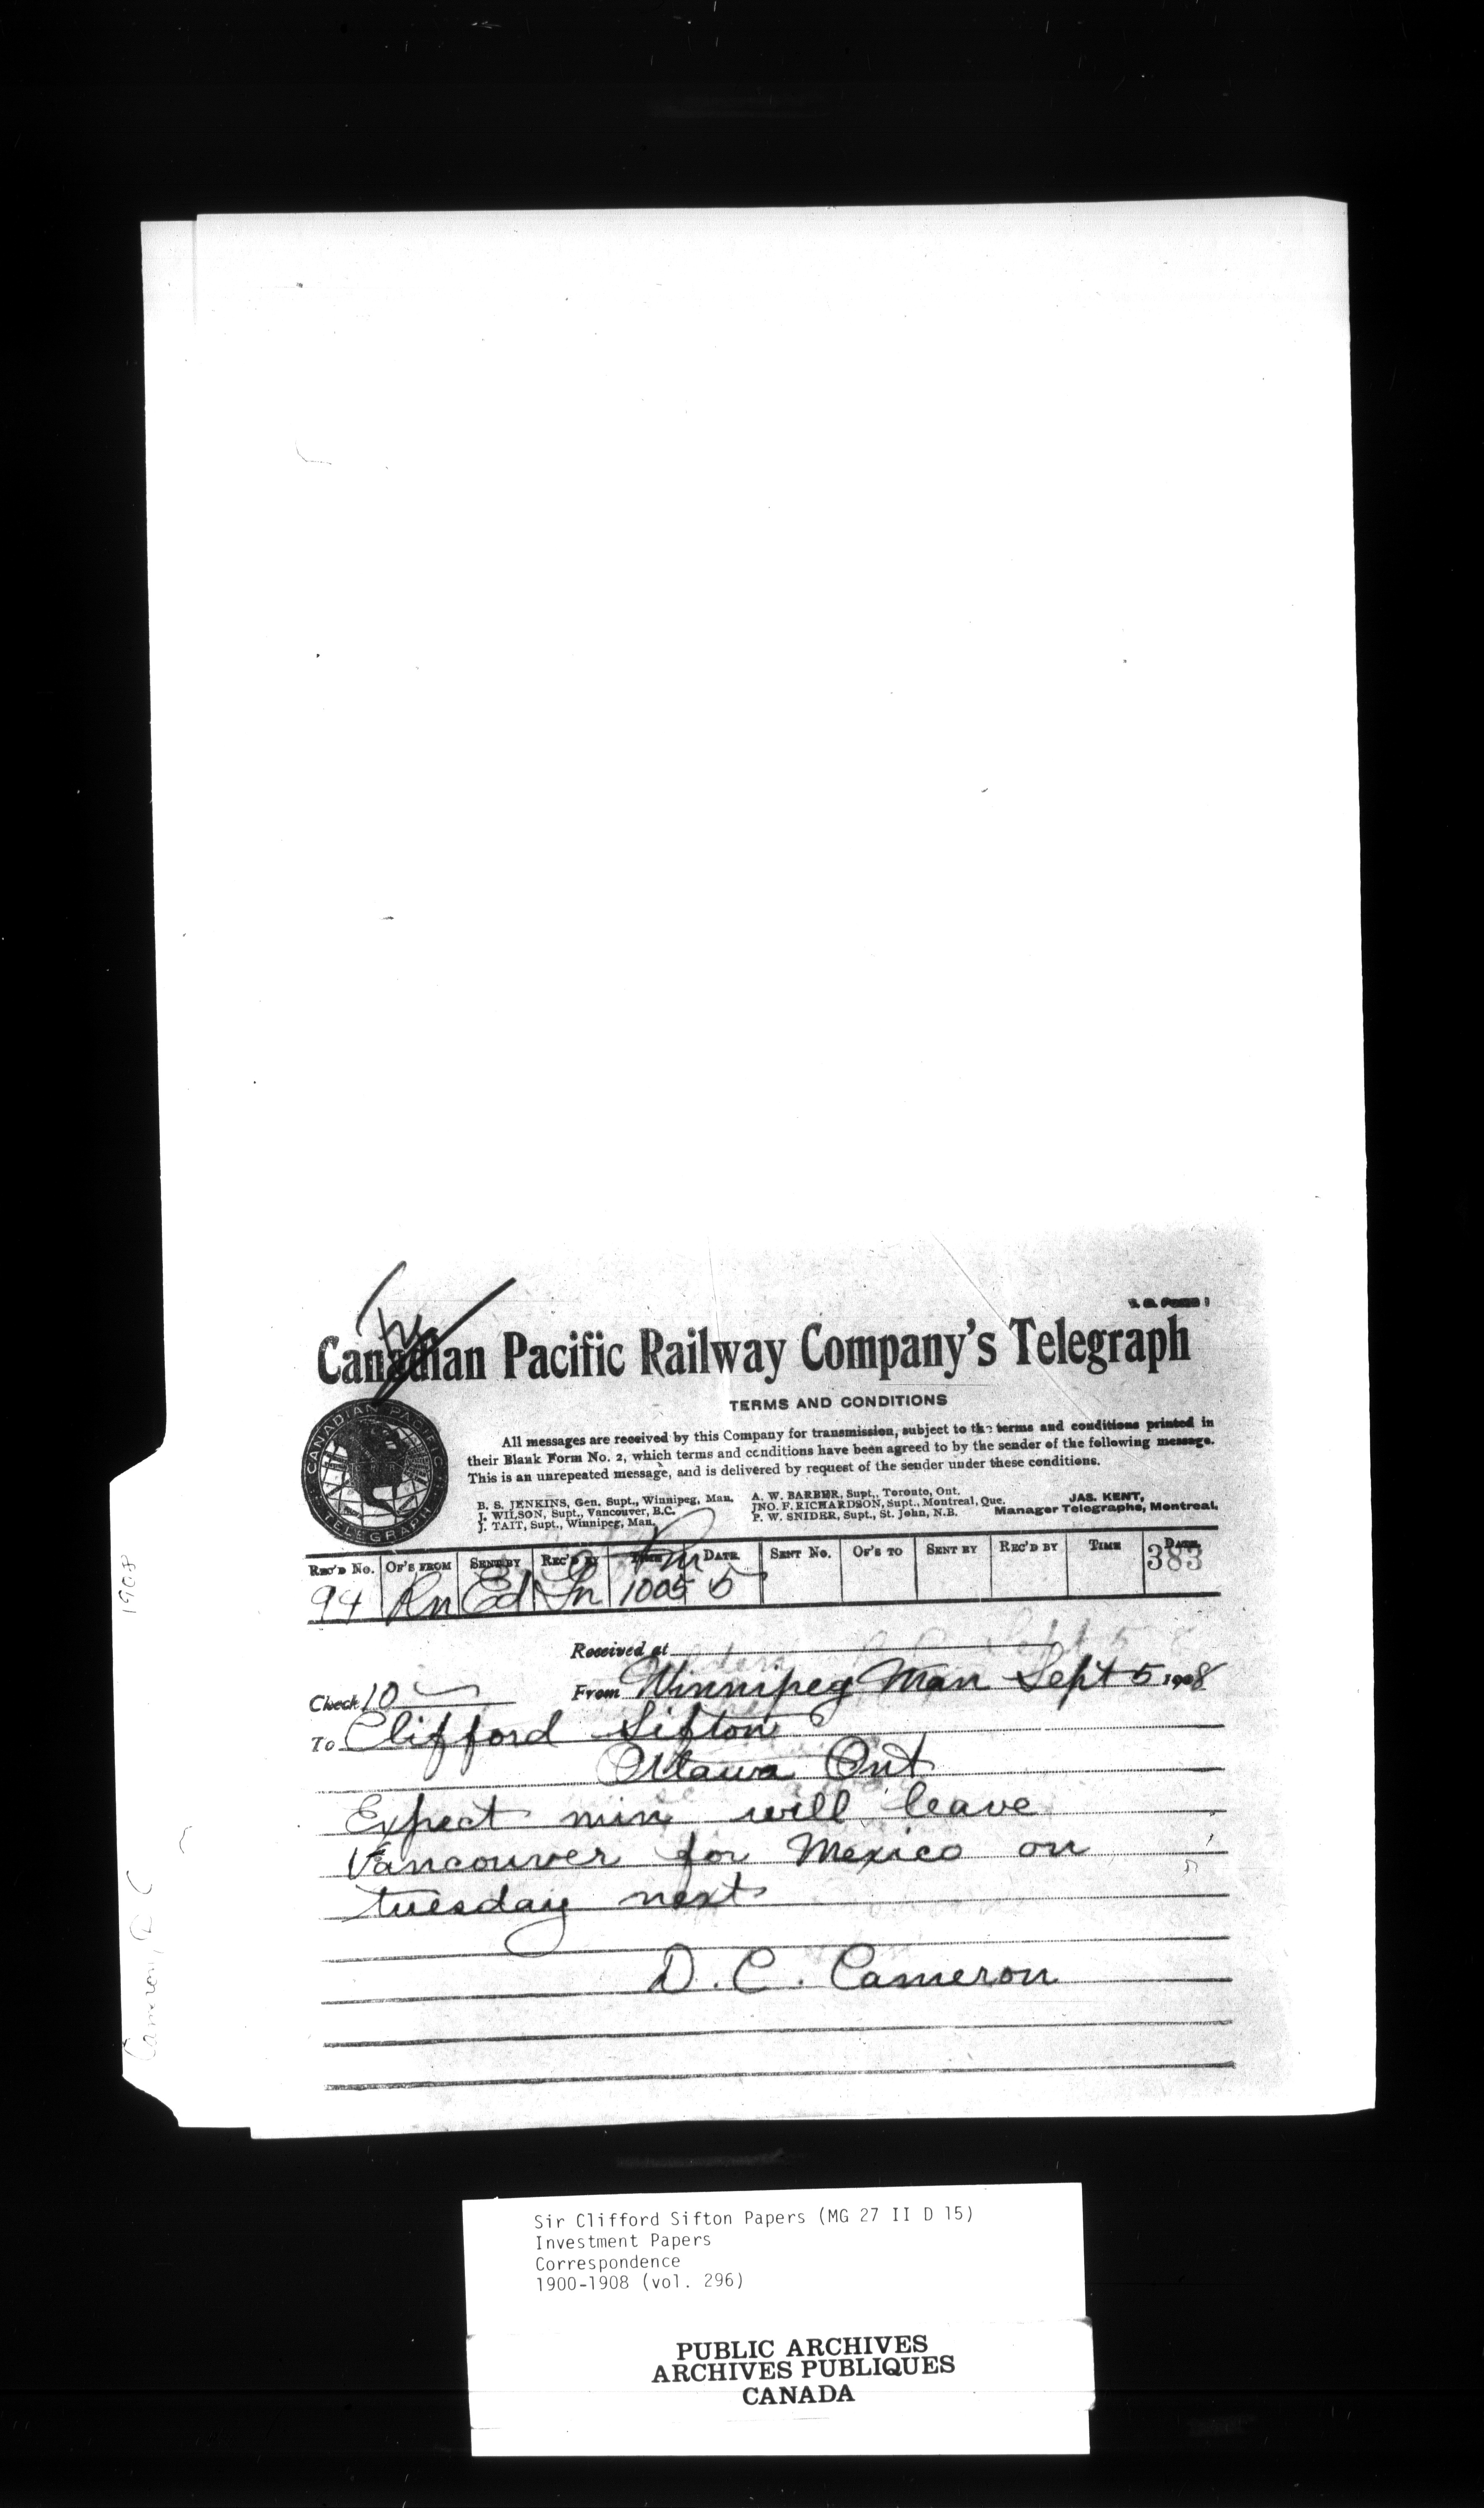 T. D. FORM 1
Canadian Pacific Railway Company's Telegraph
TERMS AND CONDITIONS
CANADIAN PACIFIC
TELEGRAPH
All messages are received by this Company for transmission, subject to the terms and conditions printed in
their Blank Form No. 2, which terms and conditions have been agreed to by the sender of the following message.
This is an unrepeated message, and is delivered by request of the sender under these conditions.
B. S. JENKINS, Gen. Supt., Winnipeg, Man.
J. WILSON, Supt., Vancouver, B.C.
J. TAIT, Supt., Winnipeg, Man.
A. W. BARBER, Supt., Toronto, Ont.
JNO. F. RICHARDSON, Supt., Montreal, Que.
P. W. SNIDER, Supt., St. John, N.B.
JAS. KENT,
Manager Telegraphs, Montreal.
REC'D No. OF'S FROM SENT BY REC'D BY TIME DATE SENT No. OF'S TO SENT BY REC'D BY TIME DATE
94 Rn Ed 1005 Pm 5 383
Received at
Check 10 From Winnipeg Man Sept 5 1908
To Clifford Sifton
Ottawa Ont
Expect min will leave
Vancouver for Mexico on
tuesday next
D. C. Cameron
1908
Cameron, D C
Sir Clifford Sifton Papers (MG 27 II D 15)
Investment Papers
Correspondence
1900-1908 (vol. 296)
PUBLIC ARCHIVES
ARCHIVES PUBLIQUES
CANADA